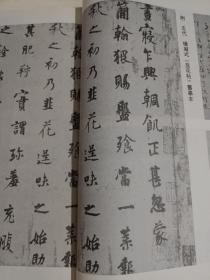 附：五代 楊凝式《韭花帖》
晝寢乍興輖飢正甚忽蒙
簡翰猥賜盤飧當一葉報
秋之初乃韭花逞味之始助
秋之初乃韭花逞味之始助
其肥羜實謂珍羞充腹
之餘銘